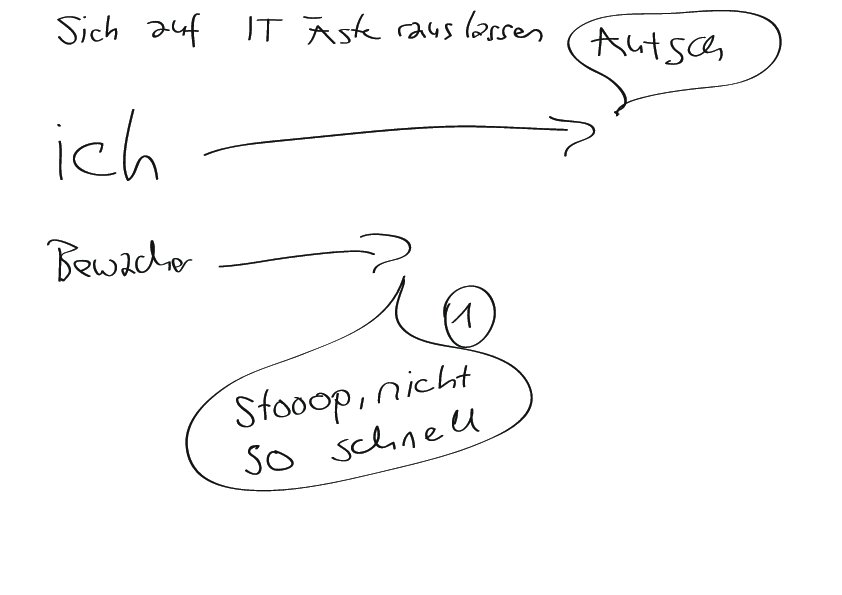 Sich auf IT Äste rauslassen
Autsch
ich
Bewacher
1
Stooop, nicht
so schnell